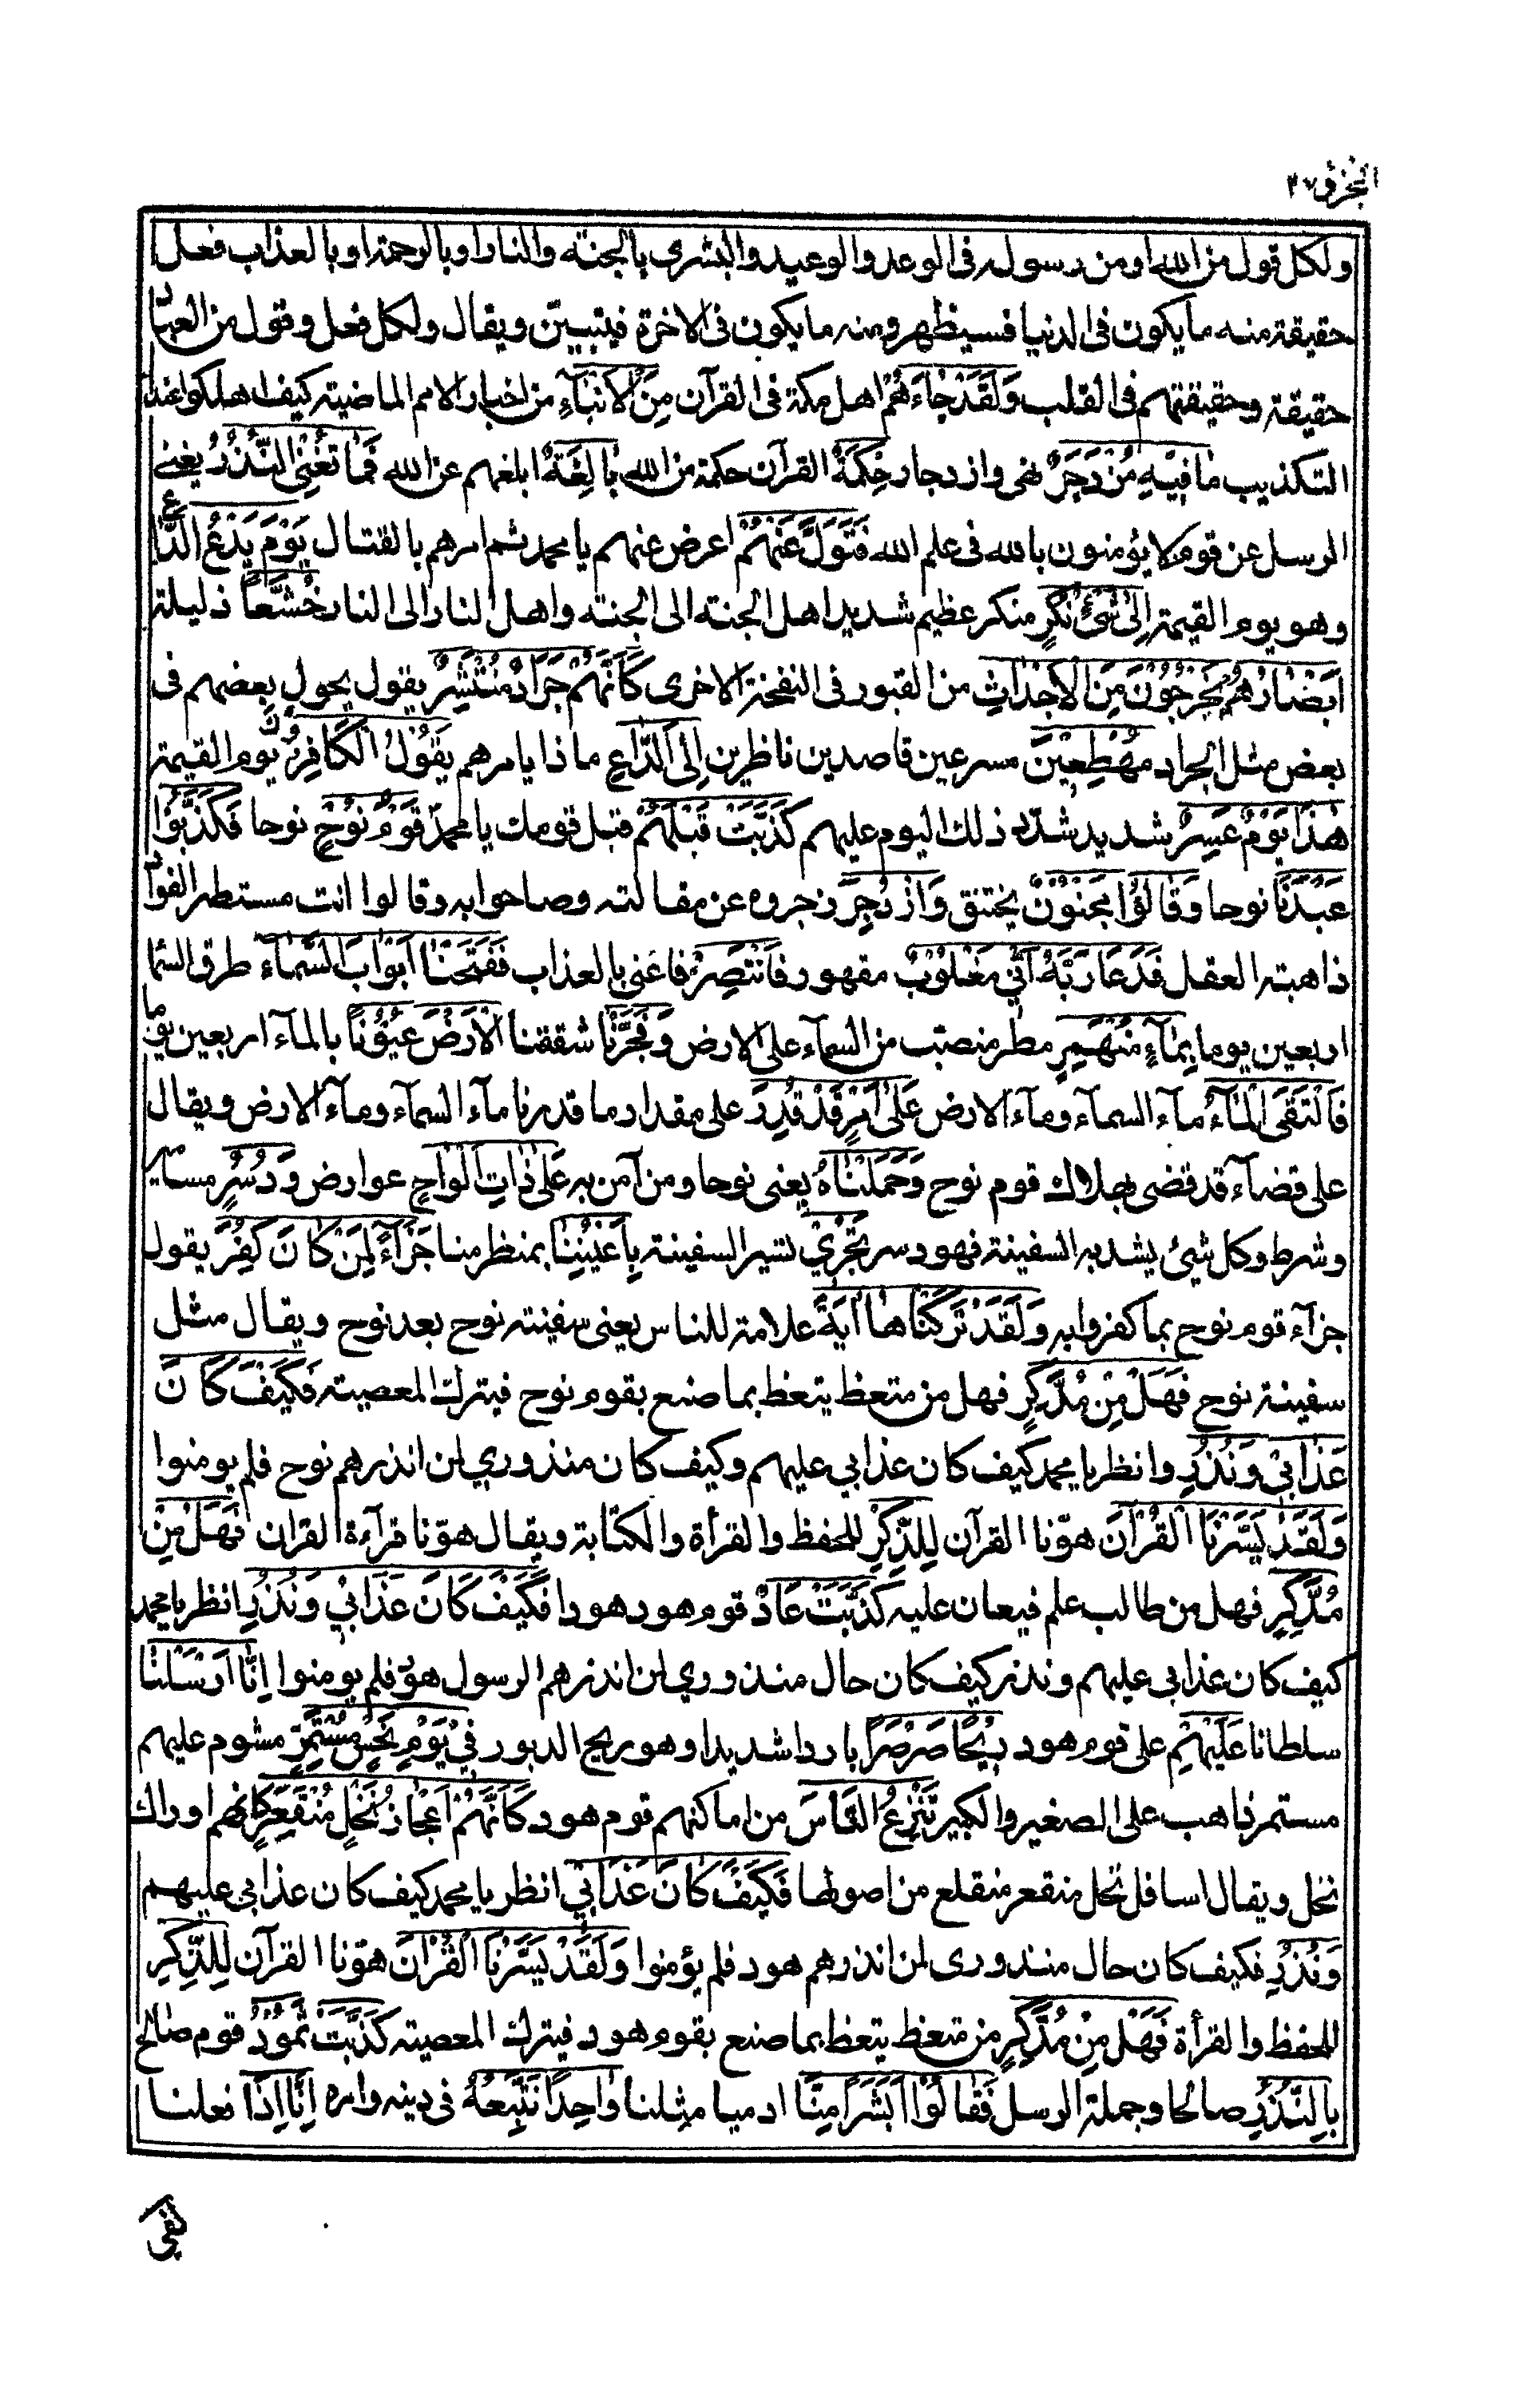 الجزء ٢٧
ولكل قول من الله او من رسوله فى الوعد والوعيد والبشرى بالجنة والنار او بالرحمة او بالعذاب فعل
حقيقة منه ما يكون فى الدنيا فسيظهر ومنه ما يكون فى الاخرة فيتبيّن ويقال ولكل فعل وقول من العباد
حقيقة وحقيقتهم فى القلب وَلَقَدْ جَاءَهُمْ اهل مكة فى القرآن مِنَ الْاَنْبَآءِ من اخبار الامم الماضية كيف اهلكوا عند
التكذيب مَا فِيْهِ مُزْدَجَرٌ نهى وازدجار حِكْمَةٌ القرآن حكمة من الله بَالِغَةٌ ابلغهم عن الله فَمَا تُغْنِ النُّذُرُ يعنى
الرسل عن قوم لا يؤمنون بالله فى علم الله فَتَوَلَّ عَنْهُمْ اعرض عنهم يا محمد ثم امرهم بالقتال يَوْمَ يَدْعُ الدَّاعِ
وهو يوم القيمة اِلٰى شَىْءٍ نُكُرٍ منكر عظيم شديد اهل الجنة الى الجنة واهل النار الى النار خُشَّعًا ذليلة
اَبْصَارُهُمْ يَخْرُجُوْنَ مِنَ الْاَجْدَاثِ من القبور فى النفخة الاخرى كَاَنَّهُمْ جَرَادٌ مُنْتَشِرٌ يقول يجول بعضهم فى
بعض مثل الجراد مُهْطِعِيْنَ مسرعين قاصدين ناظرين اِلَى الدَّاعِ ماذا يامرهم يَقُوْلُ الْكَافِرُوْنَ يوم القيمة
هٰذَا يَوْمٌ عَسِرٌ شديد شدّة ذلك اليوم عليهم كَذَّبَتْ قَبْلَهُمْ قبل قومك يا محمد قَوْمُ نُوْحٍ نوحا فَكَذَّبُوْا
عَبْدَنَا نوحا وَقَالُوْا مَجْنُوْنٌ يختنق وَازْدُجِرَ زجروه عن مقالته وصاحوا به وقالوا انت مستطر الفواد
ذاهبة العقل فَدَعَا رَبَّهٗ اَنِّي مَغْلُوْبٌ مقهور فَانْتَصِرْ فاعنى بالعذاب فَفَتَحْنَا اَبْوَابَ السَّمَآءِ طرق السما
اربعين يوما بِمَآءٍ مُنْهَمِرٍ مطر منصبّ من السمآء على الارض وَفَجَّرْنَا شققنا الْاَرْضَ عُيُوْنًا بالمآء اربعين يوما
فَالْتَقَى الْمَآءُ مآء السمآء ومآء الارض عَلٰى اَمْرٍ قَدْ قُدِرَ على مقدار ما قدرنا مآء السمآء ومآء الارض ويقال
على قضآء قد قضى بهلاك قوم نوح وَحَمَلْنَاهُ يعنى نوحا ومن آمن به عَلٰى ذَاتِ اَلْوَاحٍ عوارض وَدُسُرٍ مسامير
وشرط وكل شيئ يشد به السفينة فهو دسر تَجْرِيْ تسير السفينة بِاَعْيُنِنَا بمنظر منا جَزَآءً لِمَنْ كَانَ كُفِرَ يقول
جزآء قوم نوح بما كفروا به وَلَقَدْ تَرَكْنَاهَا اٰيَةً علامة للناس يعنى سفينة نوح بعد نوح ويقال مثل
سفينة نوح فَهَلْ مِنْ مُدَّكِرٍ فهل من متعظ يتعظ بما صنع بقوم نوح فيترك المعصية فَكَيْفَ كَانَ
عَذَابِيْ وَنُذُرِ وانظر يا محمد كيف كان عذابي عليهم وكيف كان منذوري لمن انذرهم نوح فلم يومنوا
وَلَقَدْ يَسَّرْنَا الْقُرْاٰنَ هوّنا القرآن لِلذِّكْرِ للحفظ والقرأة والكتابة ويقال هوّنا قرآءة القران فَهَلْ مِنْ
مُدَّكِرٍ فهل من طالب علم فيعان عليه كَذَّبَتْ عَادٌ قوم هود هودا فَكَيْفَ كَانَ عَذَابِيْ وَنُذُرِ انظر يا محمد
كيف كان عذابى عليهم ونذر كيف كان حال منذوري لمن انذرهم الرسول هود فلم يومنوا اِنَّا اَرْسَلْنَا
سلطانا عَلَيْهِمْ على قوم هود رِيْحًا صَرْصَرًا باردا شديدا وهو ريح الدبور فِيْ يَوْمِ نَحْسٍ مُسْتَمِرٍّ مشوم عليهم
مستمر ذاهب على الصغير والكبير تَنْزِعُ النَّاسَ من اماكنهم قوم هود كَاَنَّهُمْ اَعْجَازُ نَخْلٍ مُنْقَعِرٍ كانهم اوراك
نخل ويقال اسافل نخل منقعر منقلع من اصولها فَكَيْفَ كَانَ عَذَابِيْ انظر يا محمد كيف كان عذابى عليهم
وَنُذُرِ فكيف كان حال منذورى لمن انذرهم هود فلم يؤمنوا وَلَقَدْ يَسَّرْنَا الْقُرْاٰنَ هوّنا القرآن لِلذِّكْرِ
للحفظ والقرأة فَهَلْ مِنْ مُدَّكِرٍ من متعظ يتعظ بما صنع بقوم هود فيترك المعصية كَذَّبَتْ ثَمُوْدُ قوم صالح
بِالنُّذُرِ صالحا وجملة الرسل فَقَالُوْا اَبَشَرًا مِنَّا ادميا مثلنا وَاحِدًا نَتَّبِعُهٗ فى دينه وامره اِنَّا اِذًا فعلنا
لفى